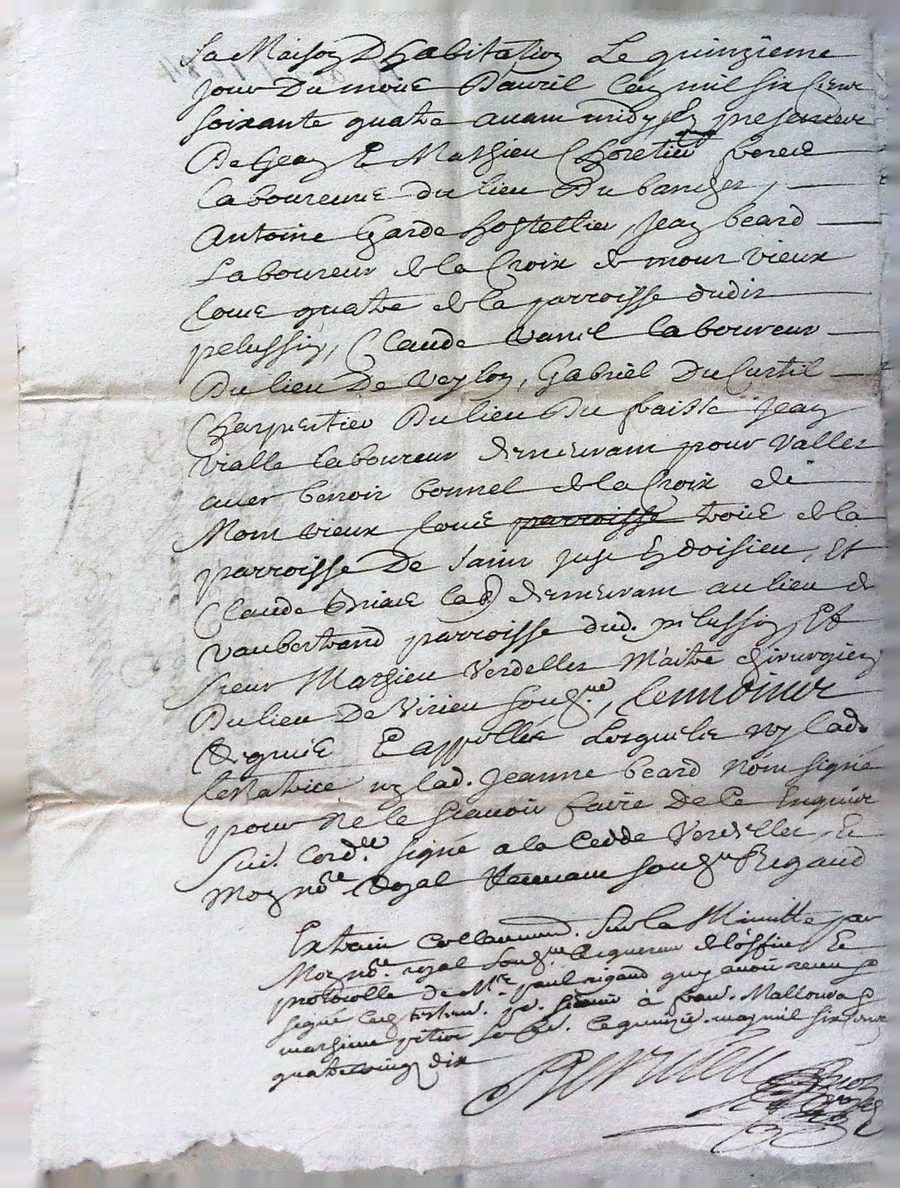 La Maison D'habitation Le quinzieme
Jour Du mois D'avril Lan mil six cens
soixante quatre avant midy, En presence
De Jean Et Mathieu Choretier freres
Laboureurs du lieu Du banchet,
Antoine Garde hostellier, Jean beard
Laboureur de la Croix de mont vieux
tous quatre de la parroisse dudit
pelussin, Claude Vanel laboureur
Du lieu De Veylon, Gabriel Du Curtil
Charpentier Du lieu Du faisse Jean
vialle laboureur demeurant pour vallet
avec benoit bonnel de la Croix de
Mont vieux tous parroisse trois de la
parroisse De Saint Just En doisieu, Et
Claude lab demeurant au lieu de
vaubertrand parroisse dud. pelussin, Et
sieur Mathieu Verdellet Maitre chirurgien
Du lieu De Virieu soubsne, tesmoins
Requis Et appellés Lesquels ny Lad.
testatrice ny lad. Jeanne beard nont signé
pour Ne le scavoir faire De Ce Enquis
suiv. lordce signé a la Cedde Verdellet, Et
Moy nore Royal Recevant soubsne Rigaud
Extrait collationné sur la Minutte par
Moy nore royal soubsne acquereur de l'office Et
protocolle de Me paul rigaud quy avoit receu Et
signé Ce testam. a
Ce quinzie. may mil six cens
quatre vingt dix